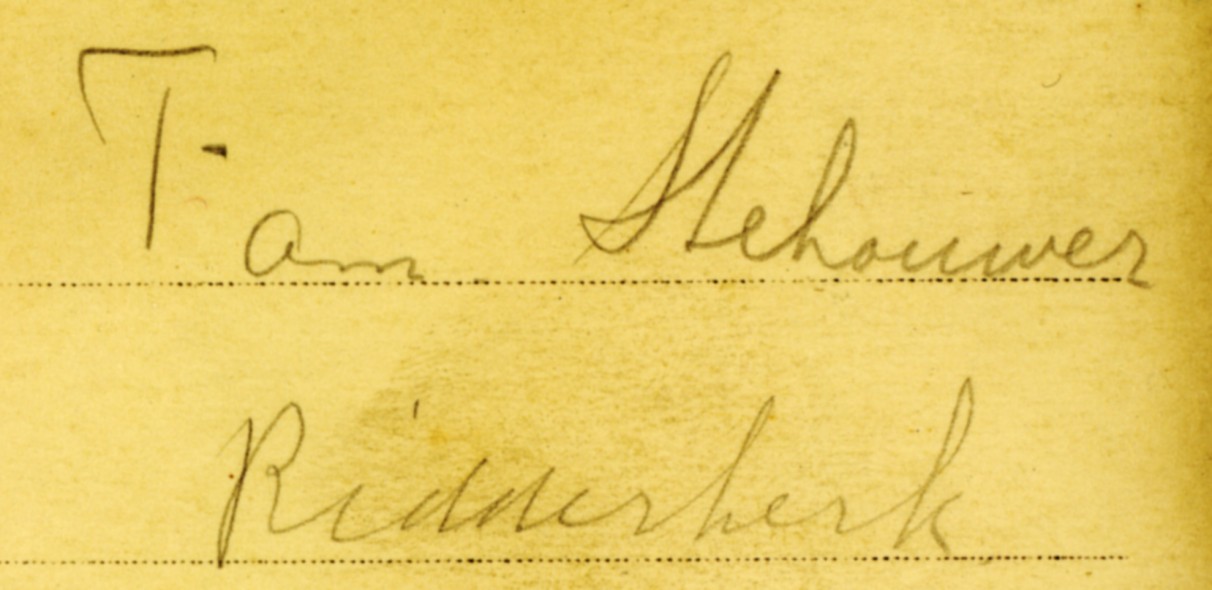 Fam Stehouwer
Ridderkerk